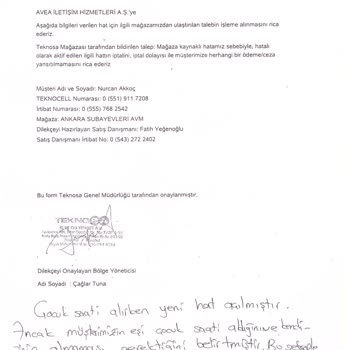 AVEA İLETİŞİM HİZMETLERİ A.Ş.'ye
Aşağıda bilgileri verilen hat için ilgili mağazamızdan ulaştırılan talebin işleme alınmasını rica
ederiz.
Teknosa Mağazası tarafından bildirilen talep: Mağaza kaynaklı hatamız sebebiyle, hatalı
olarak aktif edilen ilgili hattın iptalini, iptal dolayısı ile müşterimize herhangi bir ödeme/ceza
yansıtılmamasını rica ederiz
Müşteri Adı ve Soyadı: Nurcan Akkoç
TEKNOCELL Numarası: 0 (551) 911 7208
İrtibat Numarası: 0 (555) 768 2542
Mağaza: ANKARA SUBAYEVLERİ AVM
Dilekçeyi Hazırlayan Satış Danışmanı: Fatih Yeğenoğlu
Satış Danışmanı İrtibat No: 0 (543) 272 2402
Bu form Teknosa Genel Müdürlüğü tarafından onaylanmıştır.
TEKNOSA
Dilekçeyi Onaylayan Bölge Yöneticisi
Adı Soyadı : Çağlar Tuna
Çocuk saati alırken yeni hat açılmıştır.
Ancak müşterimizin eşi çocuk saati aldığını ve
gerektiğini belirtmiştir. Bu sebeple